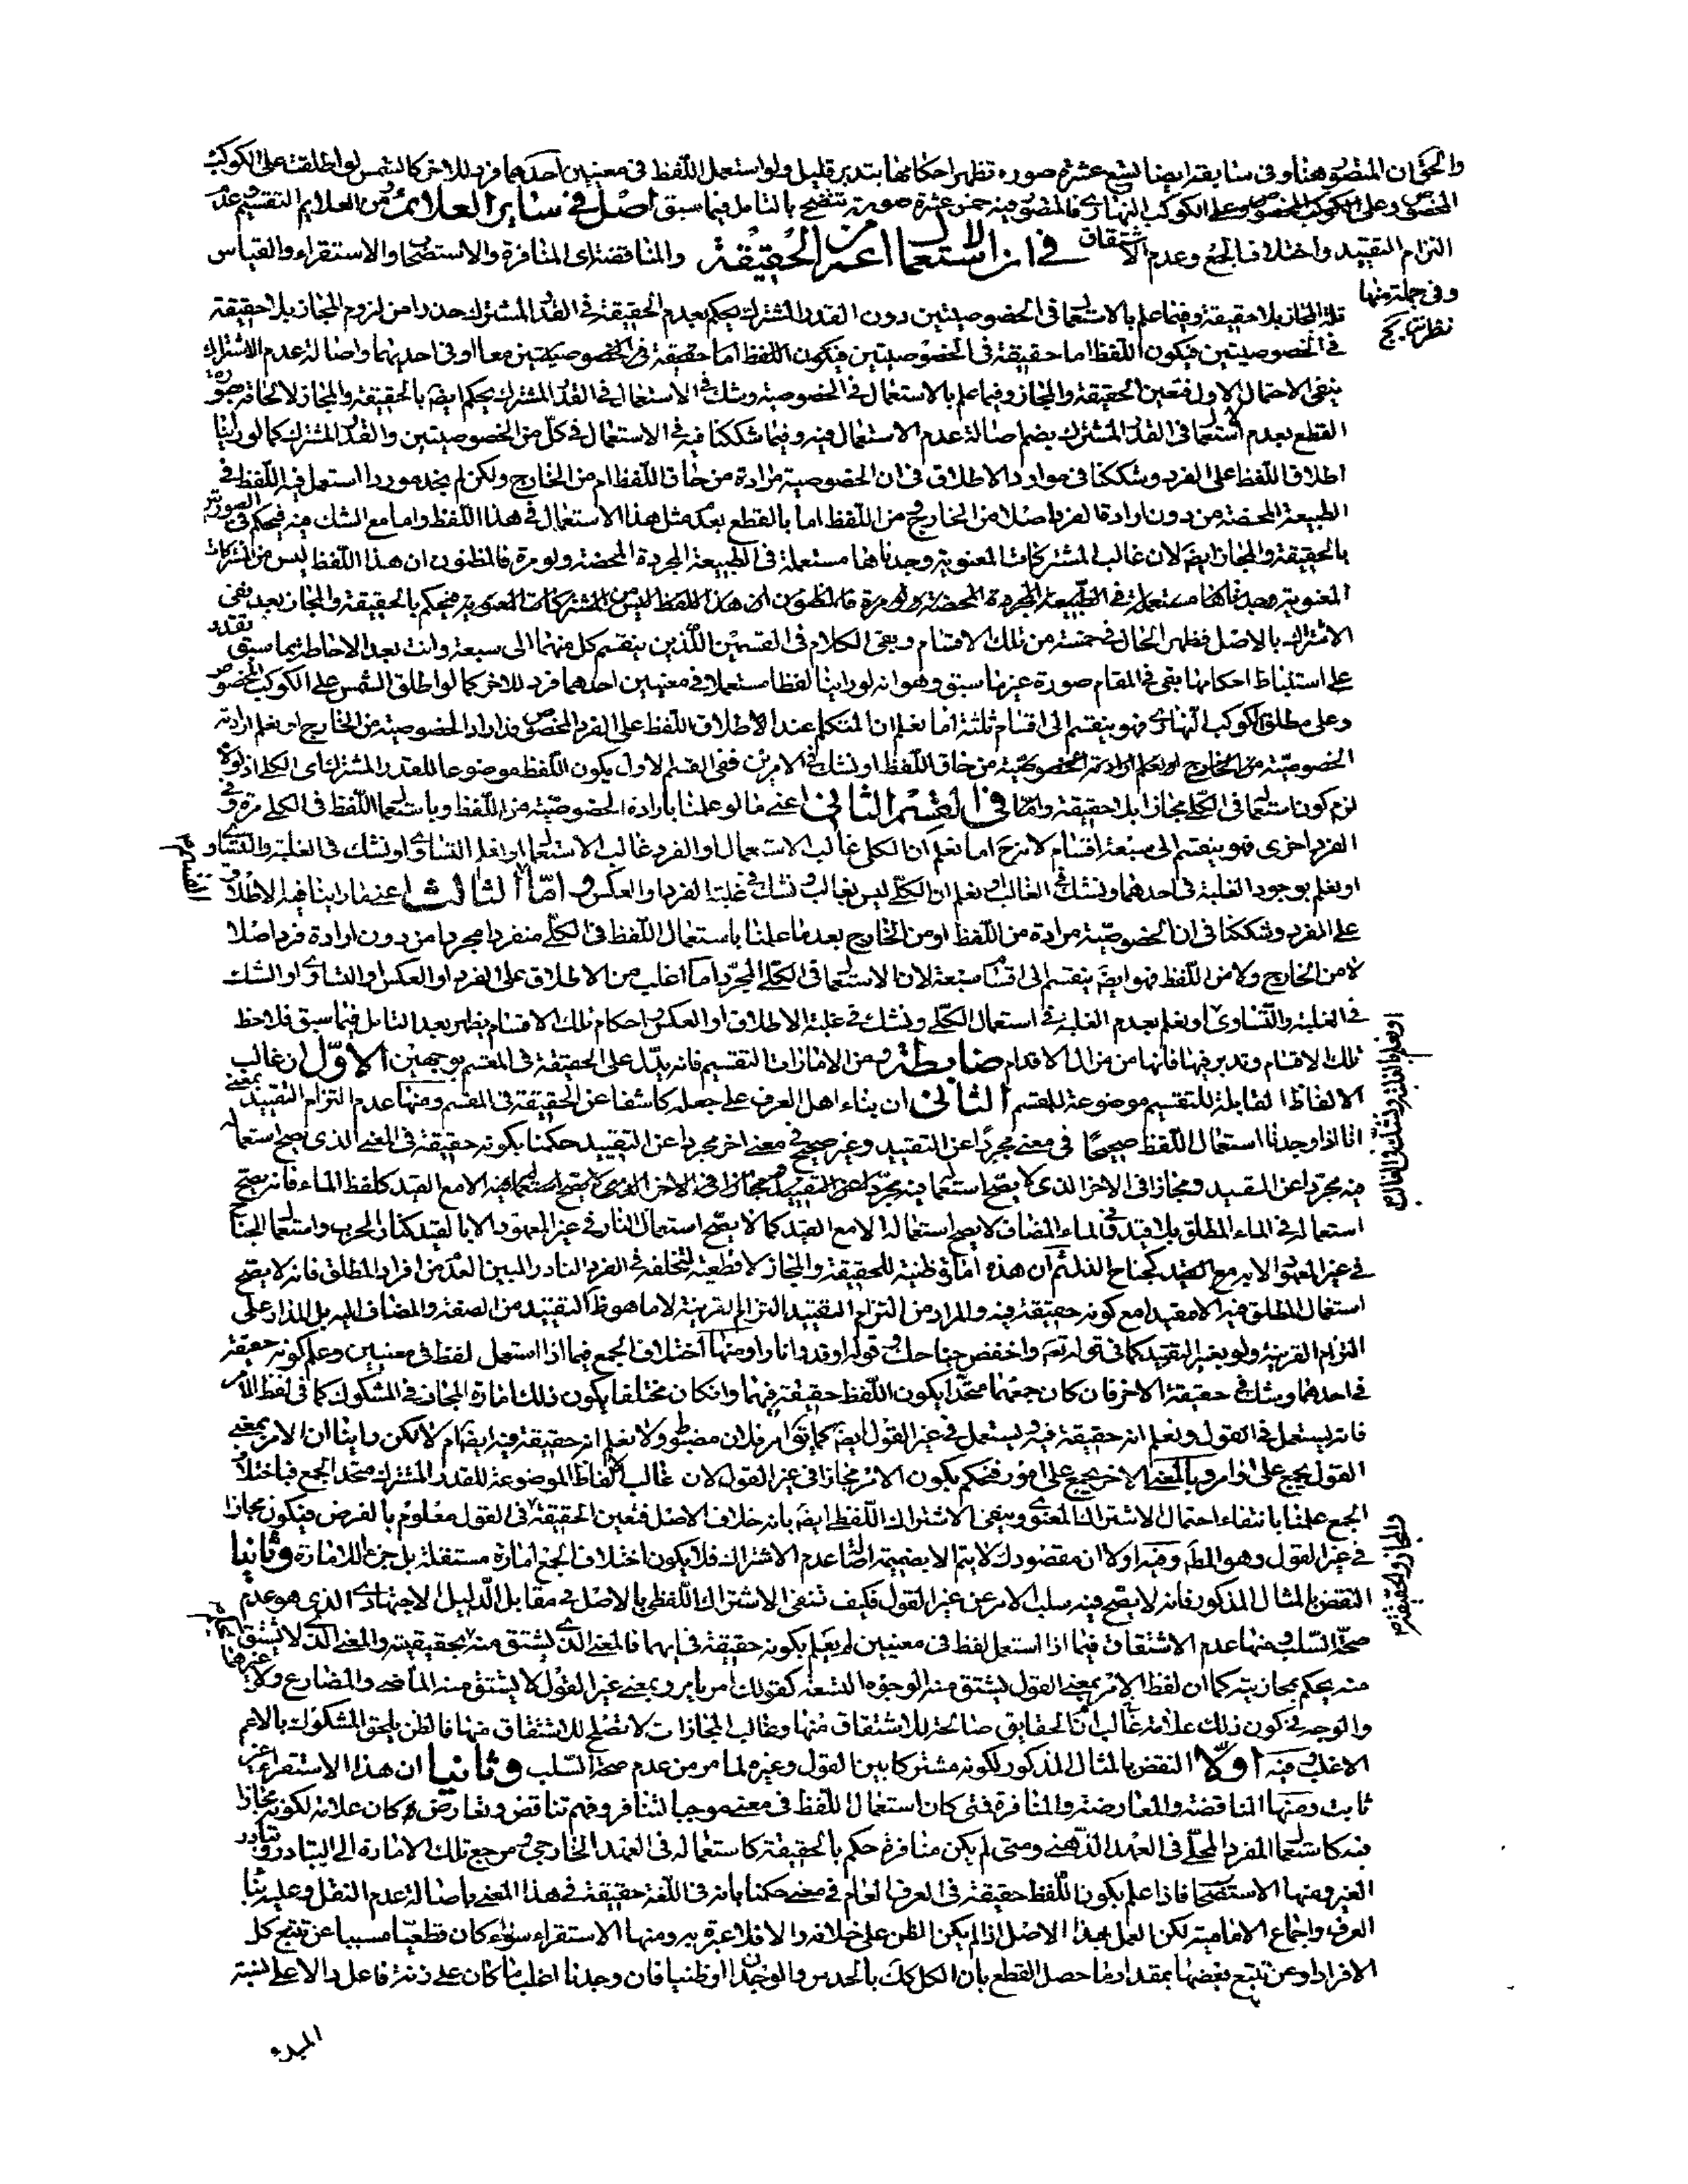 والحق ان المتصور هنا وفى سابقه ايضا تسع عشرة صورة تظهر احكامها بتدبر قليل ولو استعمل اللفظ فى معنيين احدهما فرد للاخر كالشمس لو اطلقت على الكوكب
المخصوص وعلى الكوكب النهارى فالمتصور فيه خمس عشرة صورة تتضح بالتامل فيما سبق اصل فى ساير العلائم من العلايم التقسيم وعدم
التزام التقييد واختلاف الجمع وعدم الاشتقاق فى ان الاستعمال اعم من الحقيقة والمناقضة اى المنافرة والاستصحاب والاستقراء والقياس
وفى جملة منها
نظر يجئ
قلة المجاز بلا حقيقة وفيما علم بالاستعمال فى الخصوصيتين دون القدر المشترك يحكم بعدم الحقيقة فى القدر المشترك حذرا من لزوم المجاز بلا حقيقة
فى الخصوصيتين فيكون اللفظ اما حقيقة فى الخصوصيتين فيكون اللفظ اما حقيقة فى الخصوصيتين معا او فى احديهما واصالة عدم الاشتراك
ينفى الاحتمال الاول فتعين الحقيقة والمجاز وفيما علم بالاستعمال فى الخصوصية وشك فى الاستعمال فى القدر المشترك يحكم ايضا بالحقيقة والمجاز لالحاقه بصورة
القطع بعدم الاستعمال فى القدر المشترك بضم اصالة عدم الاستعمال فيه وفيما شككنا فيه فى الاستعمال فى كل من الخصوصيتين والقدر المشترك كما لو راينا
اطلاق اللفظ على الفرد وشككنا فى موارد الاطلاق فى ان الخصوصية مرادة من حاق اللفظ ام من الخارج ولكن لم نجد موردا استعمل فيه اللفظ فى
الطبيعة المحضة من دون ارادة الفرد اصلا من الخارج ومن اللفظ اما بالقطع بعدم مثل هذا الاستعمال فى هذا اللفظ واما مع الشك فيه فيحكم فى الصورتين
بالحقيقة والمجاز ايضا لان غالب المشتركات المعنوية وجدناها مستعملة فى الطبيعة المجردة المحضة ولو مرة فالمظنون ان هذا اللفظ ليس من المشتركات
المعنوية وجدناها مستعملة فى الطبيعة المجردة المحضة ولو مرة فالمظنون ان هذا اللفظ ليس من المشتركات المعنوية فيحكم بالحقيقة والمجاز بعد نفى
الاشتراك بالاصل فظهر الحال فى خمسة من تلك الاقسام وبقى الكلام فى القسمين اللذين ينقسم كل منهما الى سبعة وانت بعد الاحاطة بما سبق تقدر
على استنباط احكامها بقى فى المقام صورة غير ما سبق وهو انه لو راينا لفظا مستعملا فى معنيين احدهما فرد للاخر كما لو اطلق الشمس على الكوكب المخصوص
وعلى مطلق الكوكب النهارى فهو ينقسم الى اقسام ثلثة اما نعلم ان المتكلم عند الاطلاق اللفظ على الفرد المخصوص قد اراد الخصوصية من الخارج او نعلم ارادته
الخصوصية من الخارج او نعلم ارادته الخصوصية من حاق اللفظ او نشك فى الامرين ففى القسم الاول يكون اللفظ موضوعا للقدر المشترك اى الكلى اذ لولاه
لزم كون استعماله فى الكلى مجازا بلا حقيقة واما فى القسم الثانى اعنى ما لو علمنا بارادة الخصوصية من اللفظ وباستعمال اللفظ فى الكلى مرة وفى
الفرد اخرى فهو ينقسم الى سبعة اقسام لانه اما نعلم ان الكلى غالب الاستعمال او الفرد غالب الاستعمال او نعلم التساوى او نشك فى الغلبة والتساوى
او نعلم بوجود الغلبة فى احدهما ونشك فى الغالب او نعلم ان الكلى ليس بغالب ونشك فى غلبة الفرد او العكس واما الثالث اعنى ما راينا فيه الاطلاق
على الفرد وشككنا فى ان الخصوصية مرادة من اللفظ او من الخارج بعد ما علمنا باستعمال اللفظ فى الكلى منفردا مجردا من دون ارادة فرد اصلا
لا من الخارج ولا من اللفظ فهو ايضا ينقسم الى اقسام سبعة لان الاستعمال فى الكلى المجرد اما اغلب من الاطلاق على الفرد او العكس او التساوى او الشك
فى الغلبة والتساوى او نعلم بعدم الغلبة فى استعمال الكلى ونشك فى غلبة الاطلاق او العكس واحكام تلك الاقسام يظهر بعد التامل فيما سبق فلاحظ
او نعلم بالغلبة ونشك فى الغالب
تلك الاقسام وتدبر فيها فانها من مزال الاقدام ضابطة ومن الامارات التقسيم فانه يدل على الحقيقة فى المقسم بوجهين الاول ان غالب
الالفاظ القابلة للتقسيم موضوعة للمقسم الثانى ان بناء اهل العرف على جعله كاشفا عن الحقيقة فى المقسم ومنها عدم التزام التقييد بمعنى
انا اذا وجدنا استعمال اللفظ صحيحا فى معنى مجردا عن التقييد وغير صحيح فى معنى اخر مجردا عن التقييد حكمنا بكونه حقيقة فى المعنى الذى يصح استعماله
فيه مجردا عن التقييد ومجازا فى الاخر الذى لا يصح استعماله فيه مجردا عن التقييد ومجازا فى الاخر الذى لا يصح استعماله فيه الا مع القيد كلفظ الماء فانه يصح
استعماله فى الماء المطلق بلا قيد وفى الماء المضاف لا يصح استعماله الا مع القيد كما لا يصح استعمال النار فى غير المعهود الا بالقيد كنار الحرب واستعمال الجناح
فى غير المعهود الا به مع القيد كجناح الذل ثم ان هذه امارة ظنية للحقيقة والمجاز لا قطعية لتخلفه فى الفرد النادر المبين العدم من افراد المطلق فانه لا يصح
استعمال المطلق فيه الا مقيدا مع كونه حقيقة فيه والمراد من التزام التقييد التزام القرينة لا ما هو ظ التقييد من الصفة والمضاف اليه بل المدار على
التزام القرينة ولو بغير التقييد كما فى قوله تع واخفض جناحك وقوله اوقدوا نارا ومنها اختلاف الجمع فيما اذا استعمل لفظ فى معنيين وعلم كونه حقيقة
فى احدهما ويشك فى حقيقة الاخر فان كان جمعهما متحدا يكون اللفظ حقيقة فيهما وان كان مختلفا يكون ذلك امارة المجاز فى المشكوك كما فى لفظ الامر
فانه يستعمل فى القول ونعلم انه حقيقة فيه ويستعمل فى غير القول ايضا كما يق امر فلان مضبوط ولا نعلم انه حقيقة فيه ايضا ام لا لكن راينا ان الامر بمعنى
القول يجمع على اوامر وبالمعنى الاخر يجمع على امور فنحكم بكون الامر مجازا فى غير القول لان غالب الالفاظ الموضوعة للقدر المشترك متحد الجمع فباختلاف
الجمع علمنا بانتفاء احتمال الاشتراك المعنوى وينفى الاشتراك اللفظى ايضا بانه خلاف الاصل فتعين الحقيقة فى القول معلوم بالفرض فيكون مجازا
والمجاز والحقيقة
فى غير القول وهو المط وفيه اولا ان مقصودك لا يتم الا بضميمة اصالة عدم الاشتراك فلا يكون اختلاف الجمع امارة مستقلة بل جزء للامارة وثانيا
النقض بالمثال المذكور فانه لا يصح فيه سلب الامر عن غير القول فكيف تنفى الاشتراك اللفظى بالاصل فى مقابل الدليل الاجتهادى الذى هو عدم
صحة السلب ومنها عدم الاشتقاق فيما اذا استعمل لفظ فى معنيين لم يعلم بكونه حقيقة فى ايهما فالمعنى الذى يشتق منه يحكم بحقيقيته والمعنى الذى لا يشتق
منه يحكم بمجازيته كما ان لفظ الامر بمعنى القول يشتق منه الوجوه التسعة كقولك امر يامر وبمعنى غير القول لا يشتق منه الماضى والمضارع ولا غيرهما
والوجه فى كون ذلك علامة غالبا ان الحقايق صالحة للاشتقاق منها وغالب المجازات لا تصلح للاشتقاق منها فالظن يلحق المشكوك بالاعم
الاغلب وفيه اولا النقض بالمثال المذكور لكونه مشتركا بين القول وغيره لما مر من عدم صحة السلب وثانيا ان هذا الاستقراء غير
ثابت ومنها المناقضة والمعارضة والمنافرة فمتى كان استعمال اللفظ فى معنى موجبا لتنافر وفهم تناقض وتعارض كان علامة لكونه مجازا
فيه كاستعمال المفرد المحلى فى العهد الذهنى ومتى لم يكن منافرة حكم بالحقيقة كاستعماله فى العهد الخارجى ومرجع تلك الامارة الى التبادر وتبادر
الغير ومنها الاستصحاب فاذا علم بكون اللفظ حقيقة فى العرف العام فى معنى حكمنا بانه فى اللغة حقيقة فى هذا المعنى باصالة عدم النقل وعليه بناء
العرف واجماع الامامية لكن العمل بهذا الاصل اذا لم يكن الظن على خلافه والا فلا عبرة به ومنها الاستقراء سواء كان قطعيا مسببا عن تتبع كل
الافراد او عن تتبع بعضها بمقدار ما حصل القطع بان الكل كك بالحدس والوجدان او ظنيا فان وجدنا اغلب ما كان على زنة فاعل دالا على نسبة
المبدء